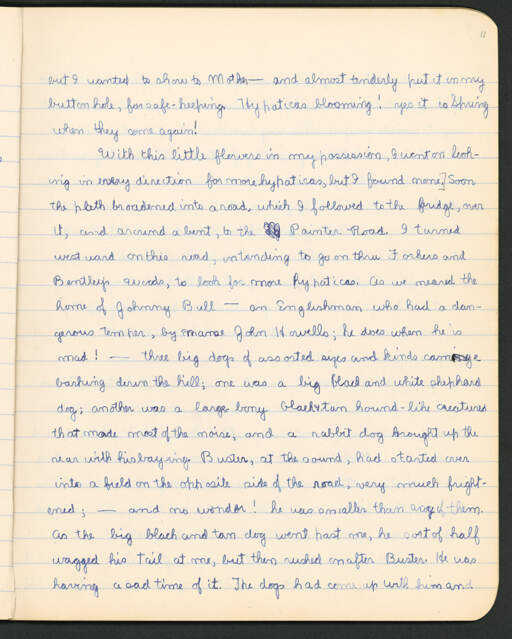 11
but I wanted to show to Mother — and almost tenderly put it in my
button hole, for safe-keeping. Hypaticas blooming! yes it is Spring
when they come again!
With this little flowers in my possession, I went on look-
ing in every direction for more hypaticas, but I found none] Soon
the path broadened into a road, which I followed to the bridge, over
it, and around a bent, to the Painter Road. I turned
westward on this road, intending to go on thru Forkers and
Bentleys woods, to look for more hypaticas. As we neared the
home of Johnny Bull — an Englishman who had a dan-
gerous temper, by name John Howells; he does when he is
mad! — three big dogs of assorted sizes and kinds came
barking down the hill; one was a big black and white shephard
dog; another was a large bony black & tan hound-like creatures
that made most of the noise; and a rabbit dog brought up the
rear with his baying. Buster, at the sound, had started over
into a field on the opposite side of the road, very much fright-
ened; — and no wonder! he was smaller than any of them.
As the big black and tan dog went past me, he sort of half
wagged his tail at me, but then rushed on after Buster. He was
having a sad time of it. The dogs had come up with him and